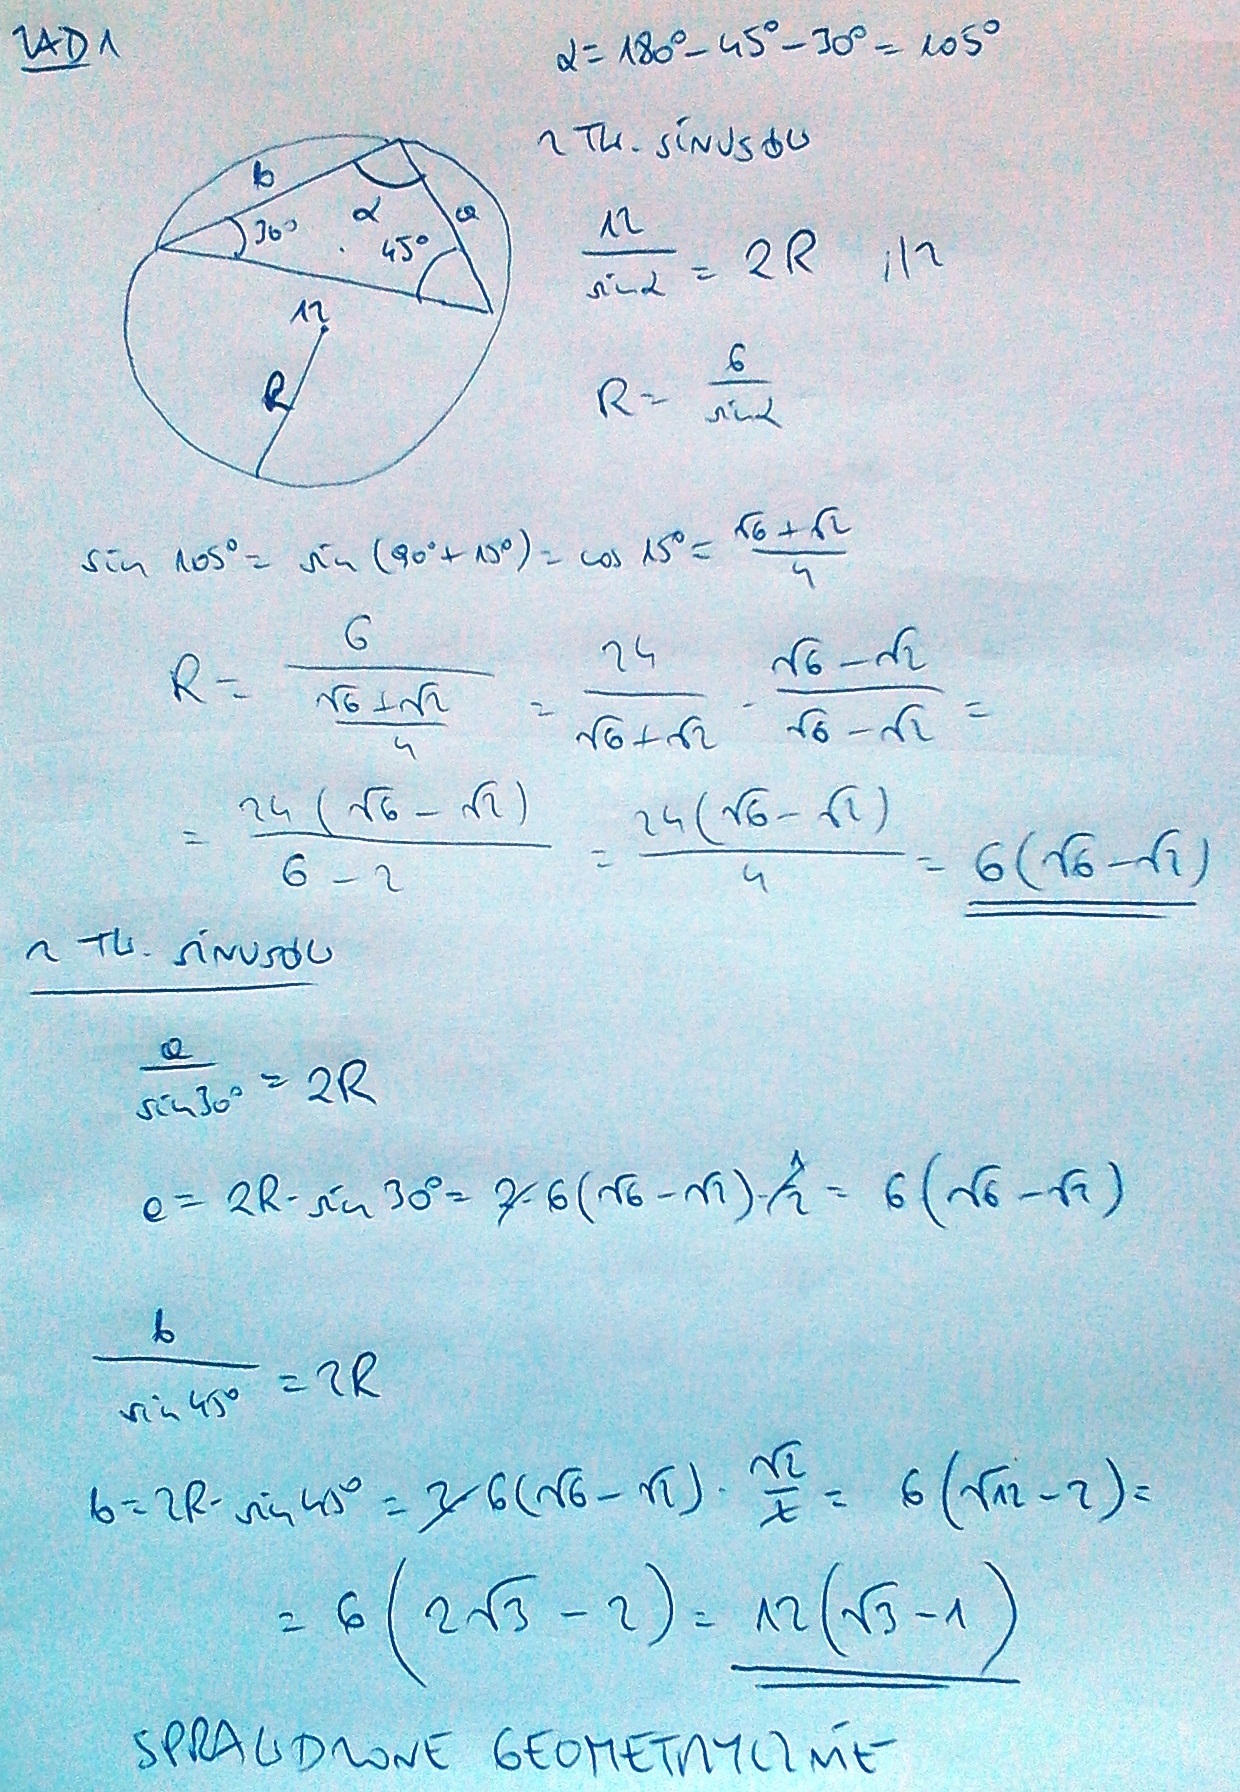 ZAD 1
α = 180° - 45° - 30° = 105°
z TW. SINUSÓW
b
30°
α
a
45°
12
R
12/sinα = 2R /:2
R = 6/sinα
sin 105° = sin (90° + 15°) = cos 15° = (√6 + √2)/4
R = 6/((√6 + √2)/4) = 24/(√6 + √2) · (√6 - √2)/(√6 - √2) =
= 24(√6 - √2)/(6 - 2) = 24(√6 - √2)/4 = 6(√6 - √2)
z TW. SINUSÓW
a/sin30° = 2R
a = 2R · sin 30° = 2 · 6(√6 - √2) · 1/2 = 6(√6 - √2)
b/sin 45° = 2R
b = 2R · sin 45° = 2 · 6(√6 - √2) · √2/2 = 6(√12 - 2) =
= 6(2√3 - 2) = 12(√3 - 1)
SPRAWDZONE GEOMETRYCZNIE